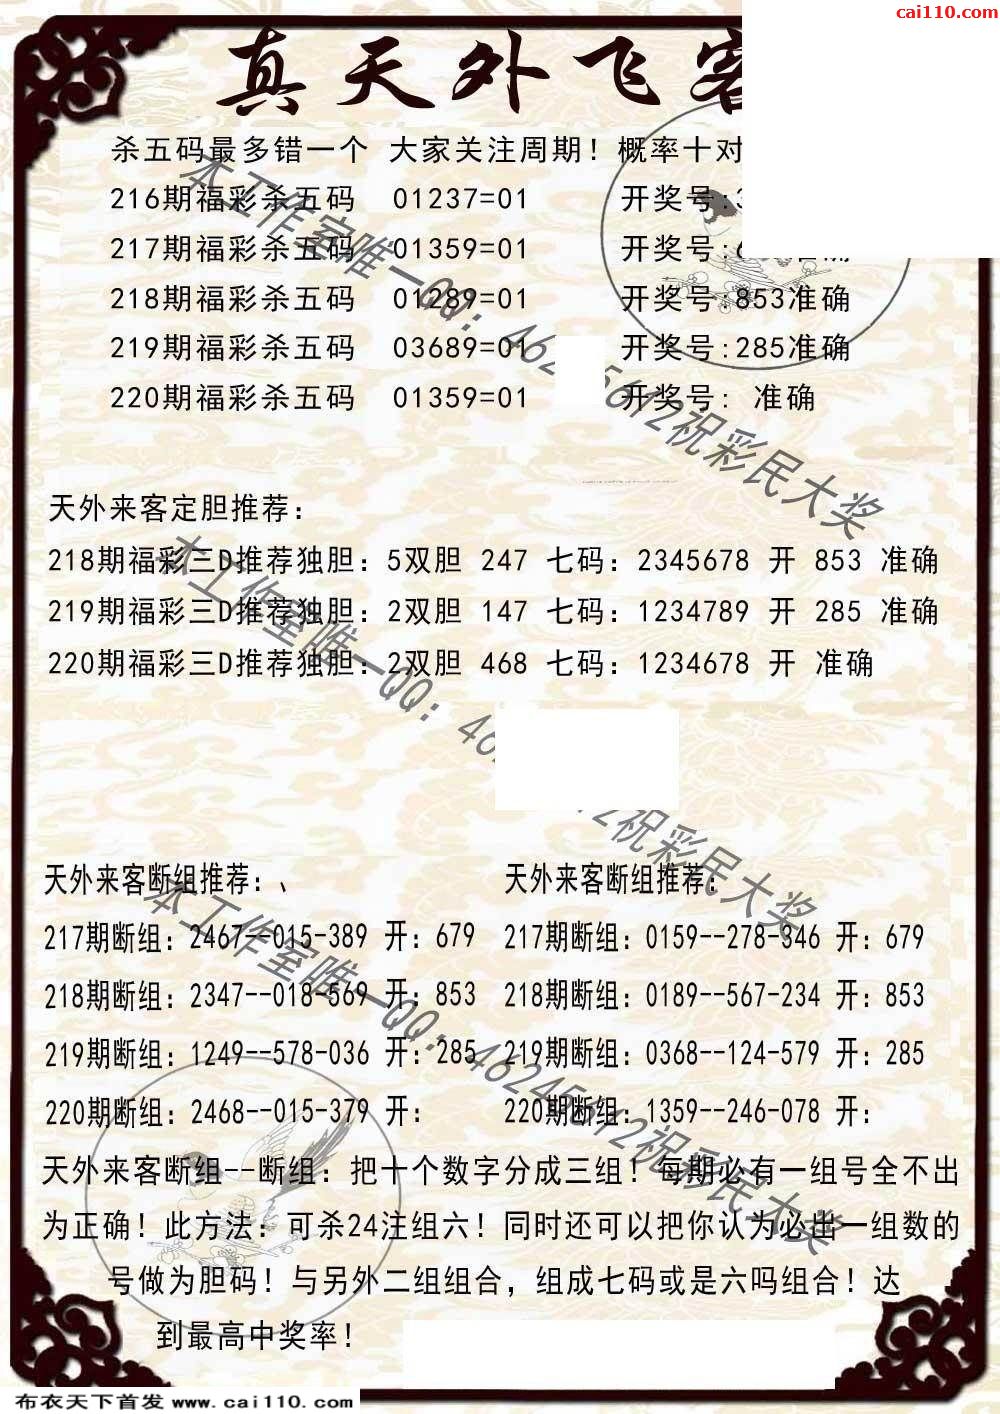 cai110.com
真天外飞客
杀五码最多错一个 大家关注周期！概率十对
216期福彩杀五码 01237=01 开奖号:3
217期福彩杀五码 01359=01 开奖号:6 准确
218期福彩杀五码 01289=01 开奖号:853准确
219期福彩杀五码 03689=01 开奖号:285准确
220期福彩杀五码 01359=01 开奖号: 准确
天外来客定胆推荐：
218期福彩三D推荐独胆：5双胆 247 七码：2345678 开 853 准确
219期福彩三D推荐独胆：2双胆 147 七码：1234789 开 285 准确
220期福彩三D推荐独胆：2双胆 468 七码：1234678 开 准确
天外来客断组推荐：、 天外来客断组推荐：
217期断组：2467--015-389 开：679 217期断组：0159--278-346 开：679
218期断组：2347--018-569 开：853 218期断组：0189--567-234 开：853
219期断组：1249--578-036 开：285 219期断组：0368--124-579 开：285
220期断组：2468--015-379 开： 220期断组：1359--246-078 开：
天外来客断组--断组：把十个数字分成三组！每期必有一组号全不出
为正确！此方法：可杀24注组六！同时还可以把你认为必出一组数的
号做为胆码！与另外二组组合，组成七码或是六吗组合！达
到最高中奖率！
本工作室唯一QQ：462 5612祝彩民大奖
本工作室唯一QQ：46 12祝彩民大奖
本工作室唯一QQ：46245612祝彩民大奖
布衣天下首发 www.cai110.com